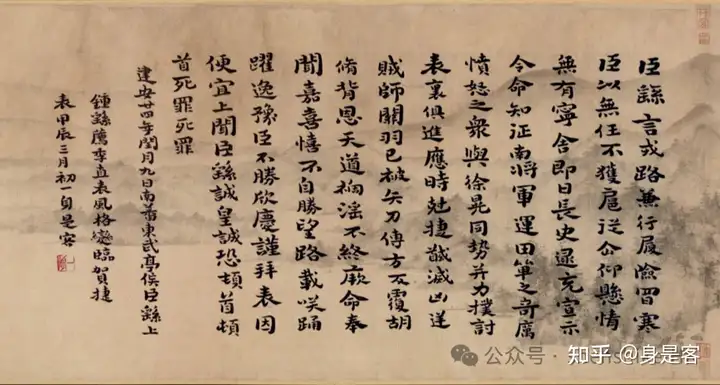 臣繇言戎路兼行履險冒寒
臣以無任不獲扈從企仰懸情
無有寧舍即日長史逯充宣示
令命知征南將軍運田單之奇厲
憤怒之衆與徐晃同勢并力撲討
表裏俱進應時剋捷馘滅凶逆
賊帥關羽已被矢刃傅方反覆胡
脩背恩天道禍淫不終厥命奉
聞嘉喜憘不自勝望路載咲踊
躍逸豫臣不勝欣慶謹拜表因
便宜上聞臣繇誠皇誠恐頓首頓
首死罪死罪
建安廿四年閏月九日南蕃東武亭侯臣繇上
鍾繇薦季直表風格變臨賀捷
表甲辰三月初一身是客
公众号 ·
知乎 @身是客